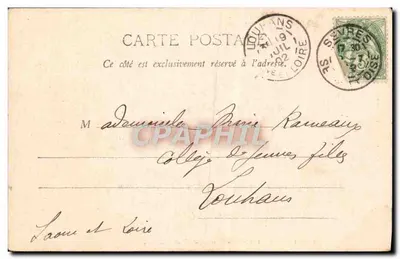 CARTE POSTALE
Ce côté est exclusivement réservé à l'adresse.
LOUHANS
19
JUIL
02
LOIRE
SÈVRES
17 30
OISE
Mademoiselle Rameaux
Collège de Jeunes filles
Louhans
Saone et Loire
CPAPHIL